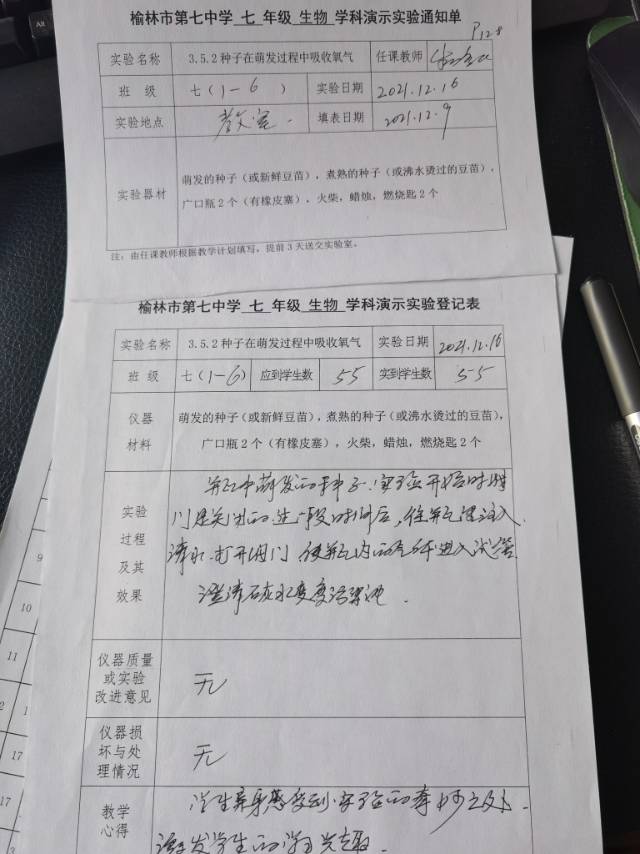 榆林市第七中学 七 年级 生物 学科演示实验通知单
P128
实验名称 3.5.2种子在萌发过程中吸收氧气 任课教师
班 级 七(1-6) 实验日期 2021.12.16
实验地点 教室. 填表日期 2021.12.9
实验器材 萌发的种子(或新鲜豆苗),煮熟的种子(或沸水烫过的豆苗),
广口瓶2个(有橡皮塞),火柴,蜡烛,燃烧匙2个
注:由任课教师根据教学计划填写,提前3天送交实验室。
榆林市第七中学 七 年级 生物 学科演示实验登记表
实验名称 3.5.2种子在萌发过程中吸收氧气 实验日期 2021.12.16
班 级 七(1-6) 应到学生数 55 实到学生数 55
仪器材料 萌发的种子(或新鲜豆苗),煮熟的种子(或沸水烫过的豆苗),
广口瓶2个(有橡皮塞),火柴,蜡烛,燃烧匙2个
实验过程及其效果
瓶中萌发的种子.实验开始时阀
门是关闭的过一段时间后,往瓶里注入
清水.打开阀门 使瓶内的气体进入试管
澄清石灰水变浑浊.
仪器质量或实验改进意见 无
仪器损坏与处理情况 无
教学心得 学生亲身感受到实验的奥妙之处.
激发学生的学习兴趣.
9
10
11
12
17
17